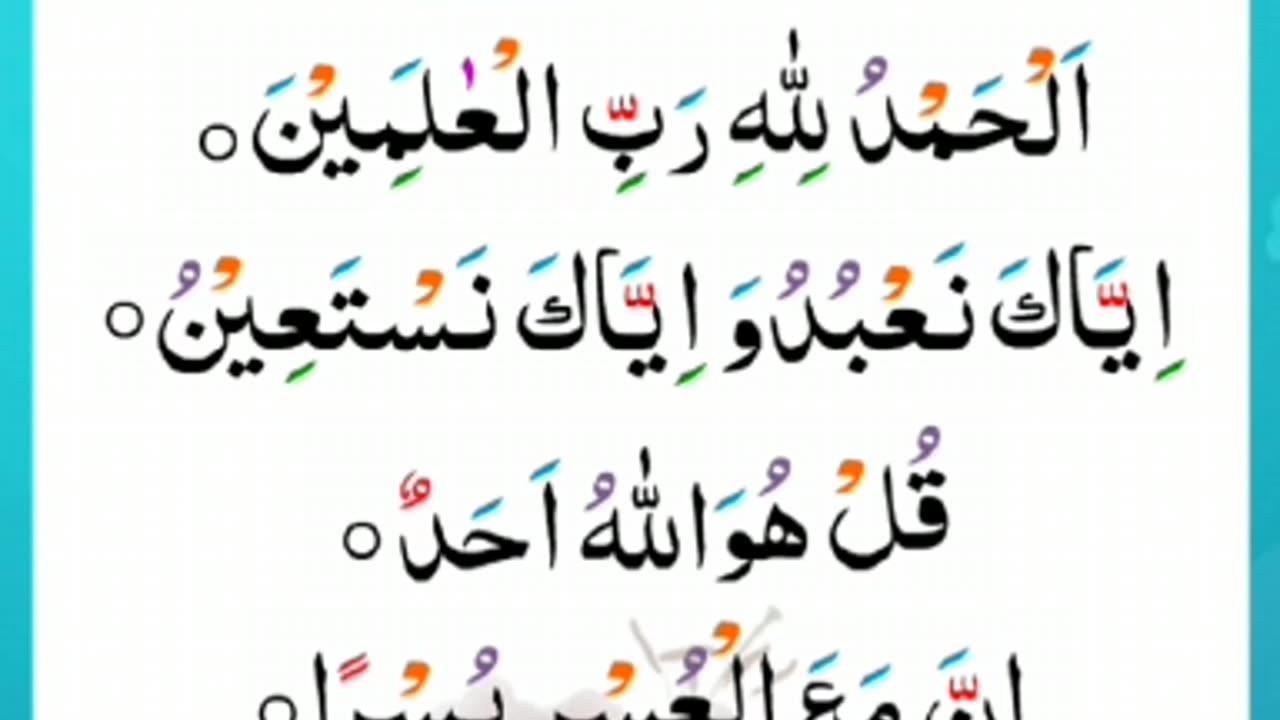 اَلْحَمْدُ لِلّٰهِ رَبِّ الْعٰلَمِيْنَ ○
اِيَّاكَ نَعْبُدُ وَ اِيَّاكَ نَسْتَعِيْنُ ○
قُلْ هُوَ اللّٰهُ اَحَدٌ ○
اِنَّ مَعَ الْعُسْرِ يُسْرًا ○